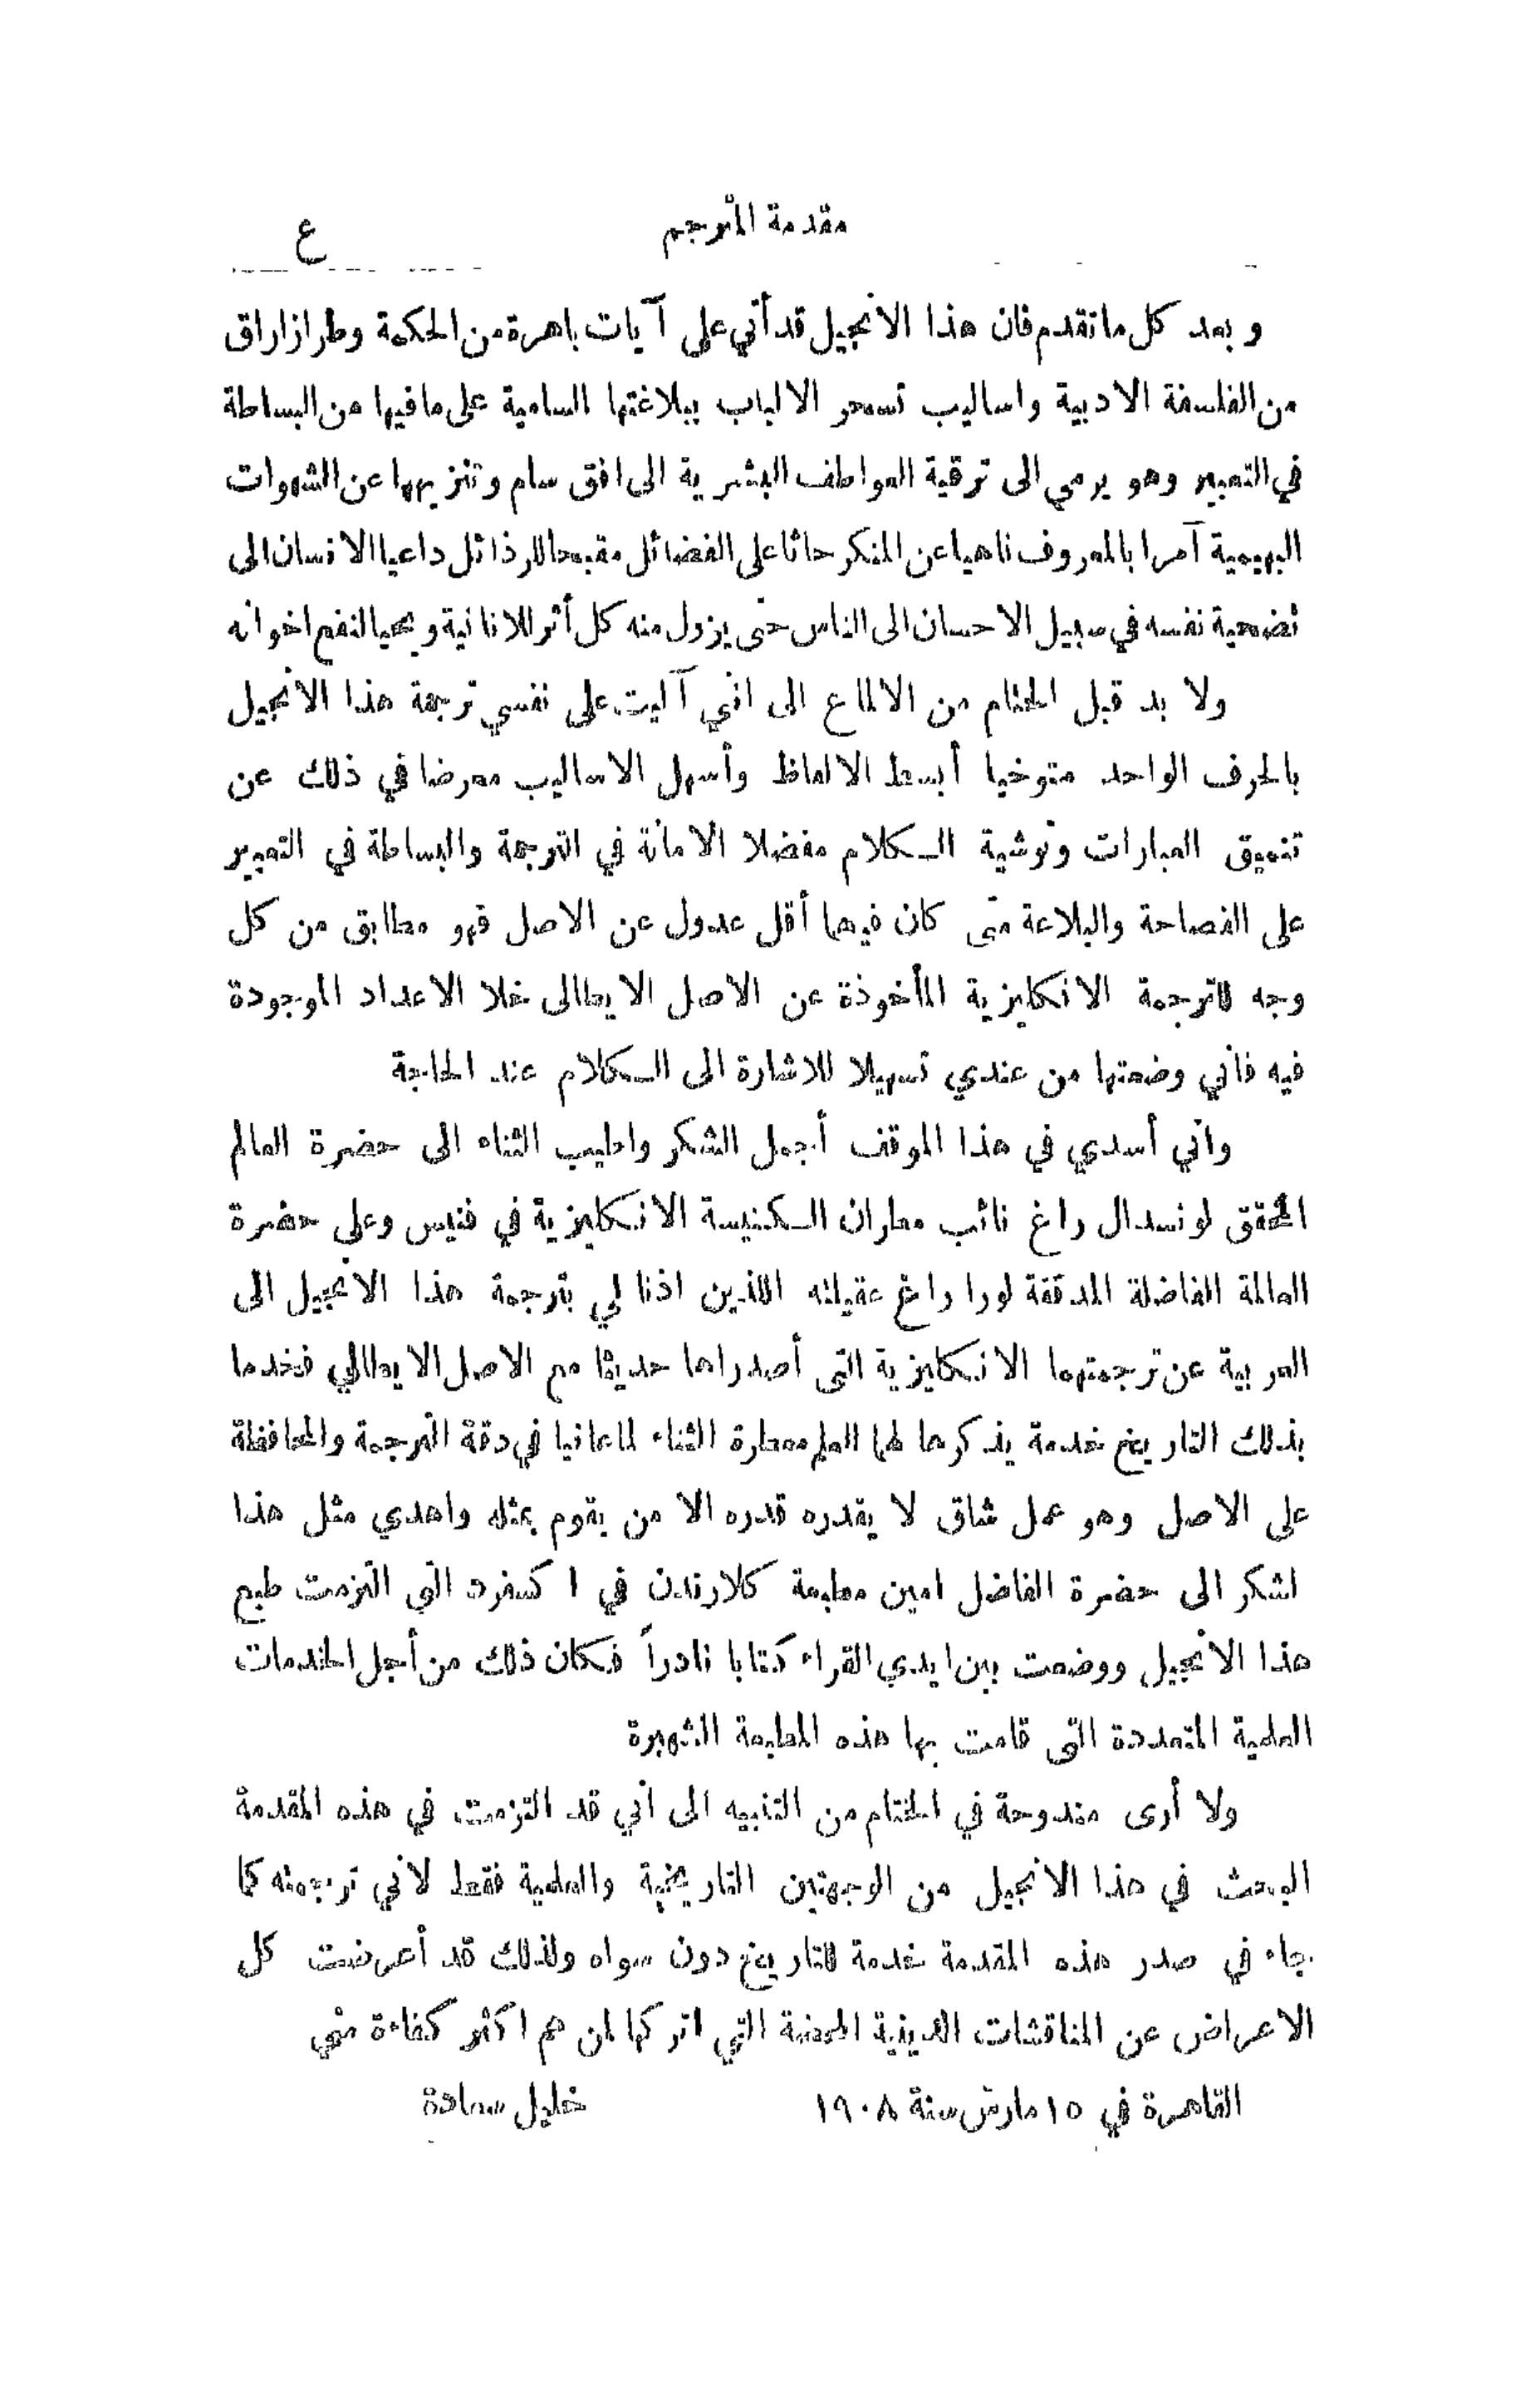 مقدمة المترجم
ع
وبعد كل ما تقدم فان هذا الانجيل قد أتي على آيات باهرة من الحكمة وطراز راق
من الفلسفة الادبية واساليب تسحر الالباب ببلاغتها السامية على ما فيها من البساطة
في التعبير وهو يرمي الى ترقية العواطف البشرية الى افق سام وتنزيهها عن الشهوات
البهيمية آمرا بالمعروف ناهيا عن المنكر حاثا على الفضائل مقبحا للرذائل داعيا الانسان الى
تضحية نفسه في سبيل الاحسان الى الناس حتى يزول منه كل أثر للانانية ويحيا لنفع اخوانه
ولا بد قبل الختام من الالماع الى اني آليت على نفسي ترجمة هذا الانجيل
بالحرف الواحد متوخيا أبسط الالفاظ وأسهل الاساليب معرضا في ذلك عن
تنميق العبارات وتوشية الكلام مفضلا الامانة في الترجمة والبساطة في التعبير
على الفصاحة والبلاغة متى كان فيهما أقل عدول عن الاصل فهو مطابق من كل
وجه للترجمة الانكليزية المأخوذة عن الاصل الايطالى خلا الاعداد الموجودة
فيه فاني وضعتها من عندي تسهيلا للاشارة الى الكلام عند الحاجة
واني أسدي في هذا الموقف أجمل الشكر واطيب الثناء الى حضرة العالم
المحقق لونسدال راغ نائب مطران الكنيسة الانكليزية في فنيس وعلى حضرة
العالمة الفاضلة المدققة لورا راغ عقيلته اللذين اذنا لي بترجمة هذا الانجيل الى
العربية عن ترجمتهما الانكليزية التى أصدراها حديثا مع الاصل الايطالي فخدما
بذلك التاريخ خدمة يذكرها لهما العلم معطرة الثناء لما عانيا في دقة الترجمة والمحافظة
على الاصل وهو عمل شاق لا يقدره قدره الا من يقوم بمثله واهدي مثل هذا
اشكر الى حضرة الفاضل امين مطبعة كلارندن في اكسفرد التي التزمت طبع
هذا الانجيل ووضعت بين ايدي القراء كتابا نادراً فكان ذلك من أجل الخدمات
العلمية المتعددة التى قامت بها هذه المطبعة الشهيرة
ولا أرى مندوحة في الختام من التنبيه الى اني قد التزمت في هذه المقدمة
البحث في هذا الانجيل من الوجهتين التاريخية والعلمية فقط لاني ترجمته كما
جاء في صدر هذه المقدمة خدمة للتاريخ دون سواه ولذلك قد أعرضت كل
الاعراض عن المناقشات الدينية المحضة التي اتركها لمن هم اكثر كفاءة مني
القاهرة في ١٥ مارس سنة ١٩٠٨ خليل سعادة